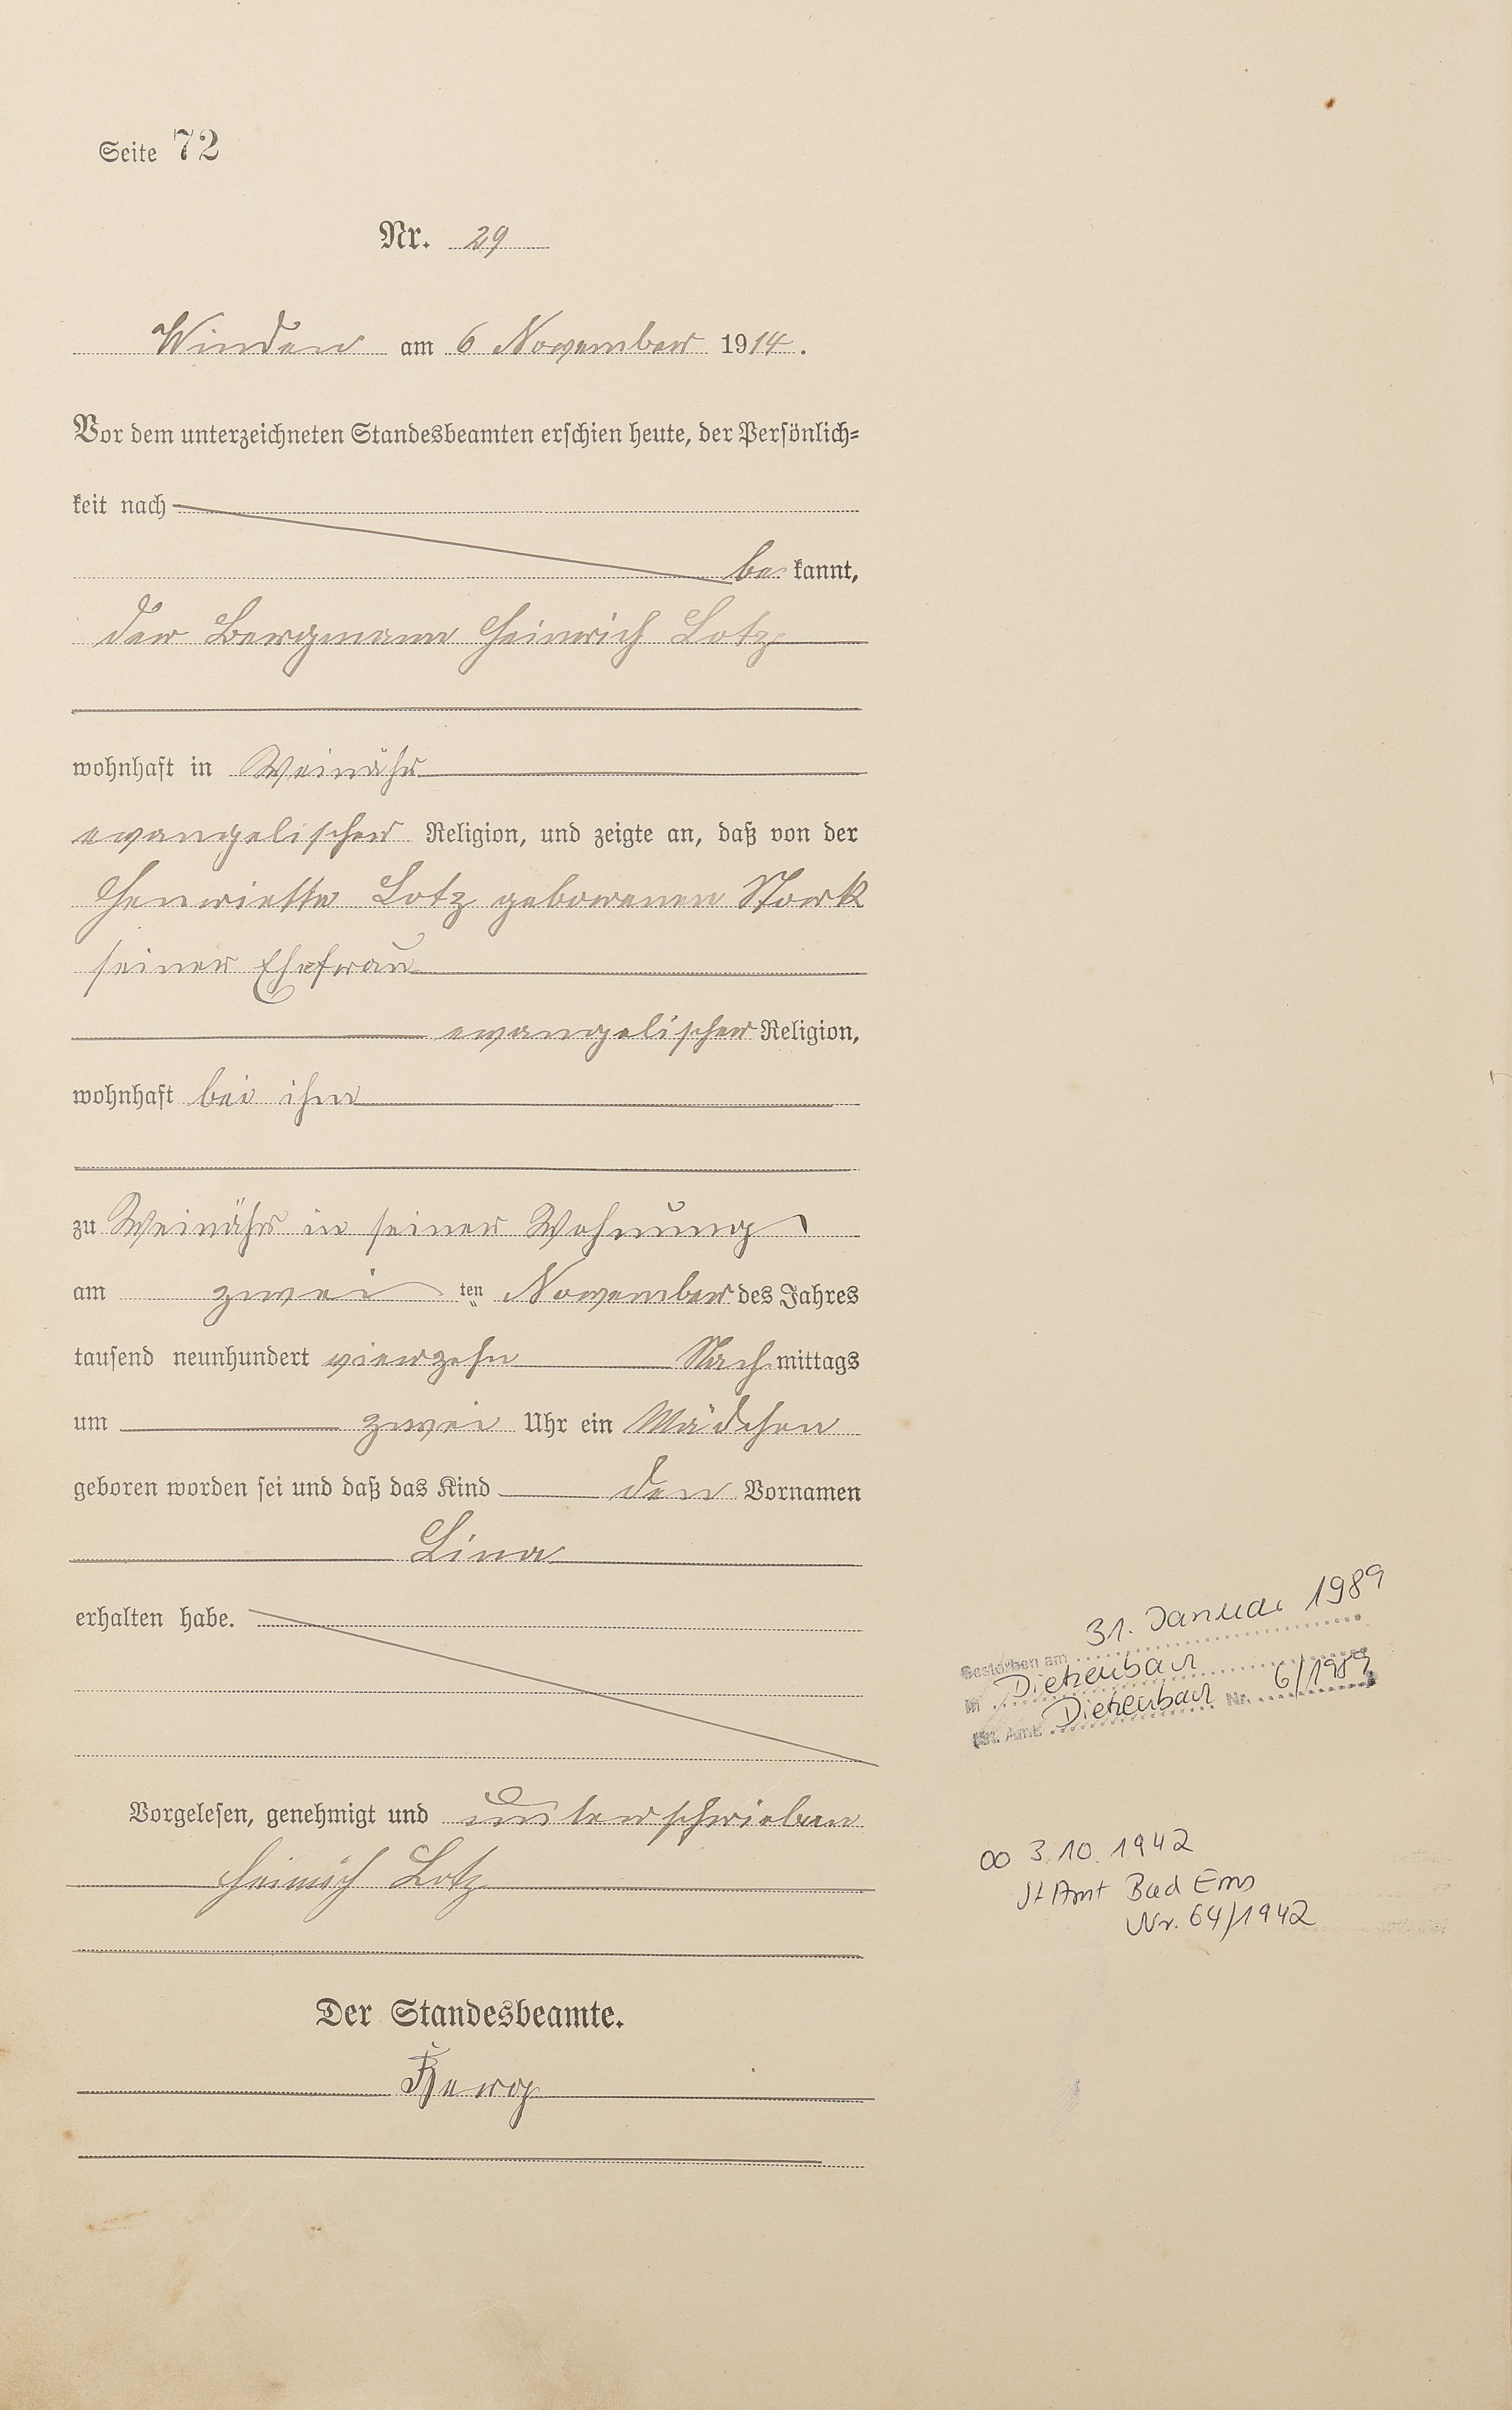 Seite 72
Nr. 29
Winden am 6 November 1914.
Vor dem unterzeichneten Standesbeamten erschien heute, der Persönlich=
keit nach
be kannt,
der Bergmann Heinrich Lotz
wohnhaft in Weinähr
evangelischer Religion, und zeigte an, daß von der
Henriette Lotz geborenen Stork
seiner Ehefrau
evangelischer Religion,
wohnhaft bei ihm
zu Weinähr in seiner Wohnung
am zwei ten November des Jahres
tausend neunhundert vierzehn Nach mittags
um zwei Uhr ein Mädchen
geboren worden sei und daß das Kind den Vornamen
Lina
erhalten habe.
Vorgelesen, genehmigt und unterschrieben
Heinrich Lotz
Der Standesbeamte.
Gestorben am 31. Januar 1989
in Dietzenbach
St. Amt Dietzenbach Nr. 6/1989
∞ 3.10.1942
StAmt Bad Ems
Nr. 64/1942